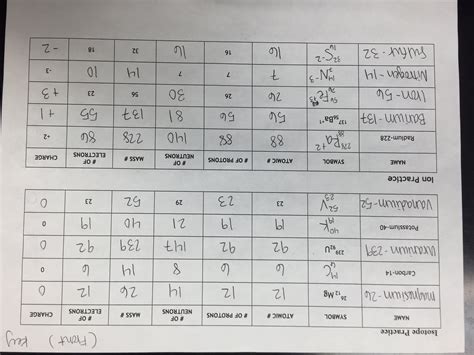 (Front) key
Isotope Practice
NAME SYMBOL ATOMIC # # OF PROTONS # OF NEUTRONS MASS # # OF ELECTRONS CHARGE
magnesium-26 26 12 Mg 12 12 14 26 12 0
Carbon-14 14 6 C 6 6 8 14 6 0
Uranium-239 239 92 U 92 92 147 239 92 0
Potassium-40 40 19 K 19 19 21 40 19 0
Vanadium-52 52 23 V 23 23 29 52 23 0
Ion Practice
NAME SYMBOL ATOMIC # # OF PROTONS # OF NEUTRONS MASS # # OF ELECTRONS CHARGE
Radium-228 228 88 Ra +2 88 88 140 228 86 +2
Barium-137 137 56 Ba +1 56 56 81 137 55 +1
Iron-56 56 26 Fe +3 26 26 30 56 23 +3
Nitrogen-14 14 7 N -3 7 7 7 14 10 -3
Sulfur-32 32 16 S -2 16 16 16 32 18 -2